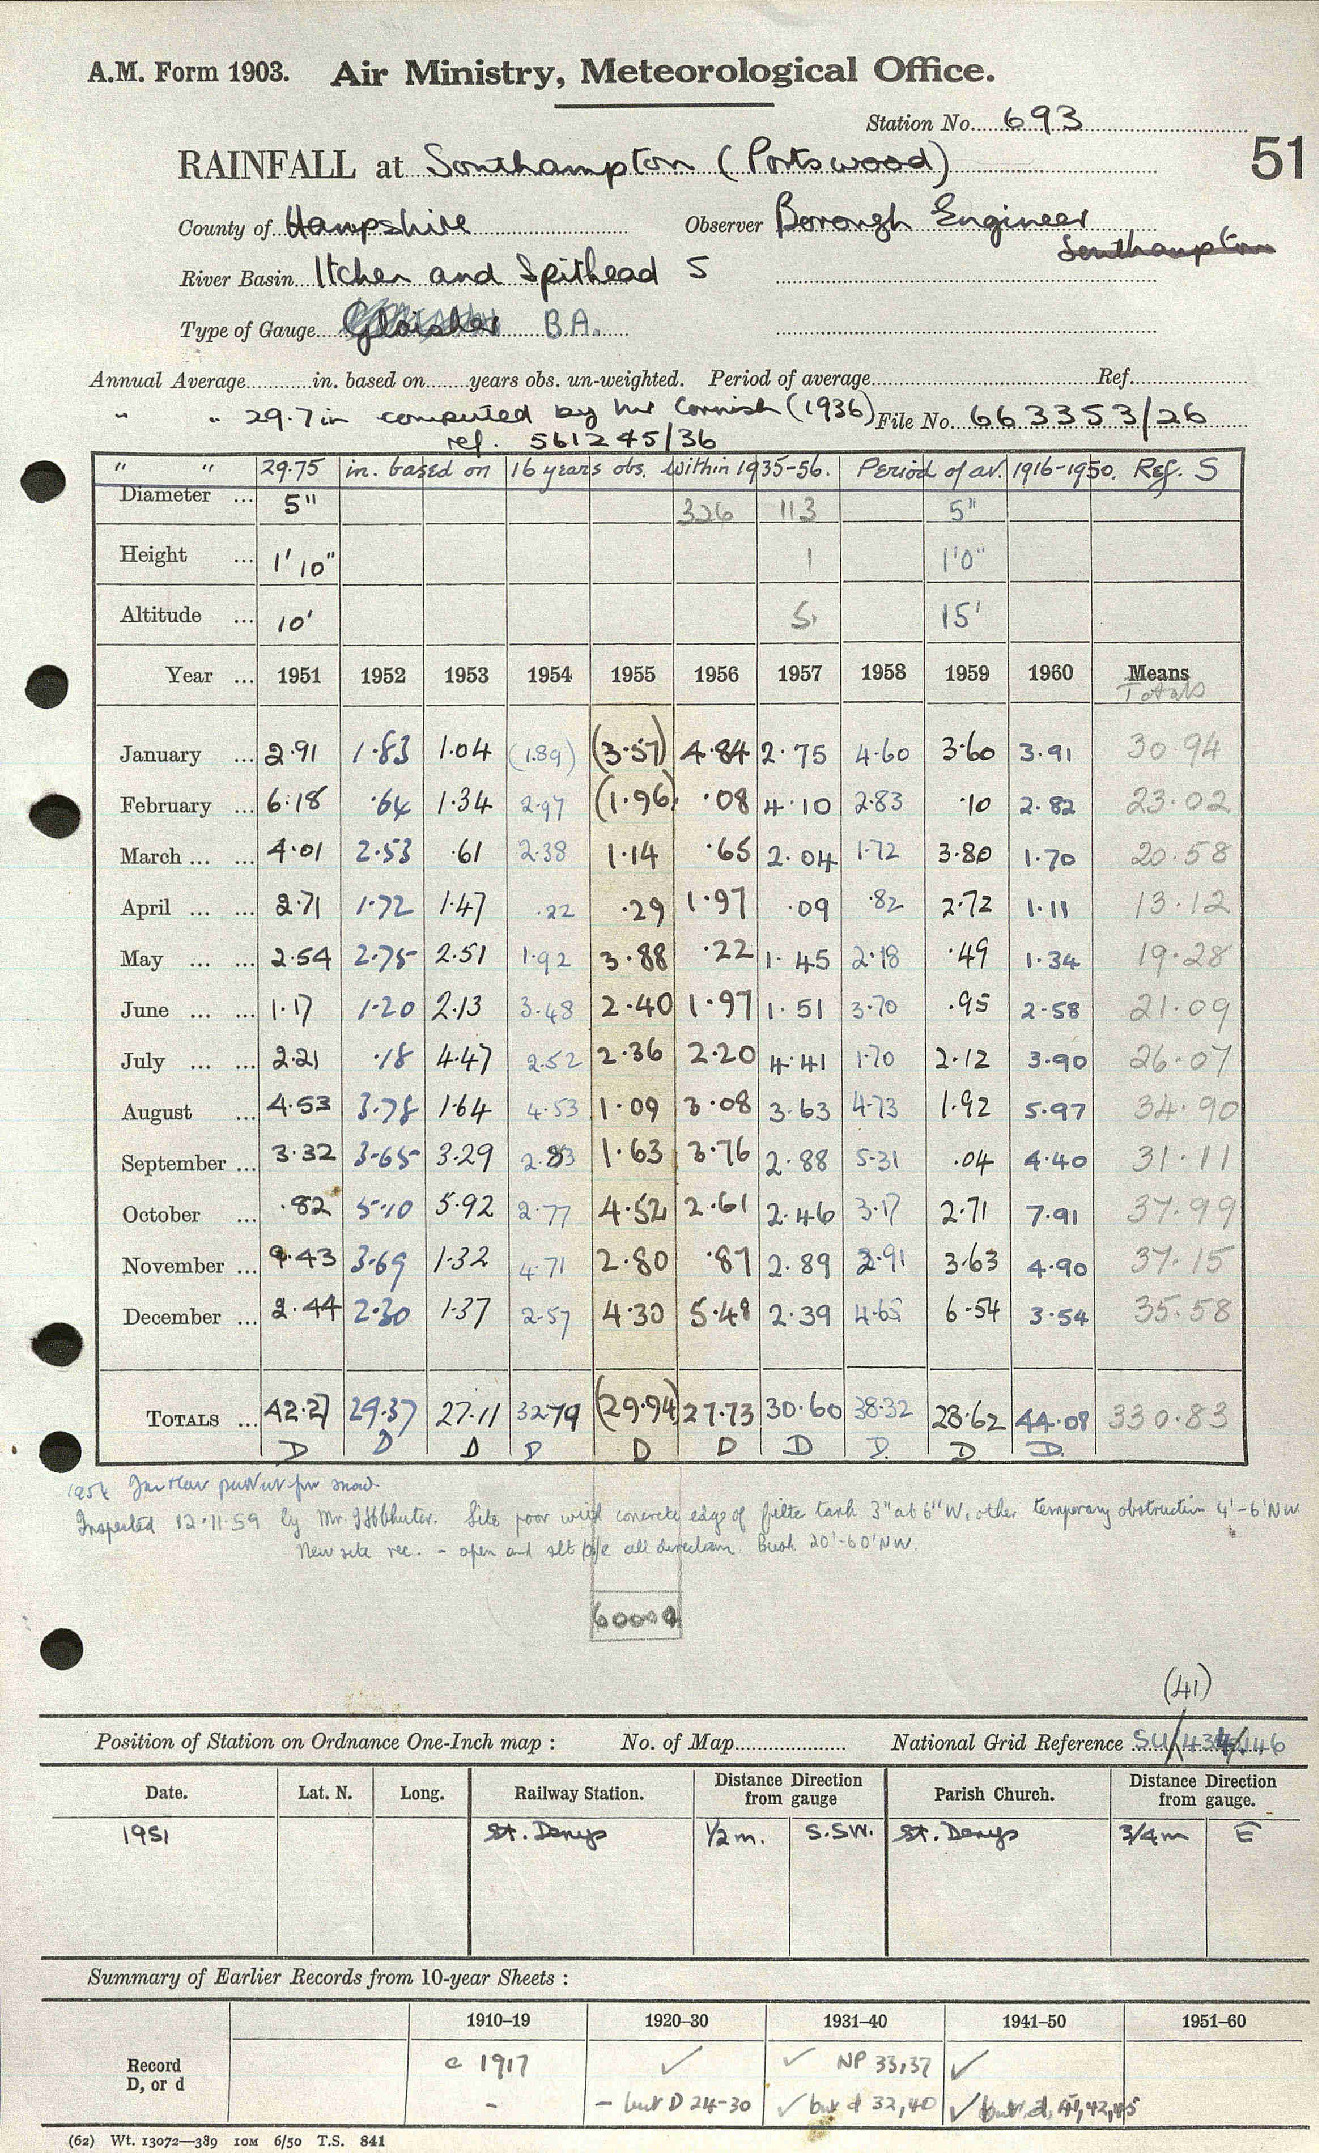 A.M. Form 1903. Air Ministry, Meteorological Office.
Station No. 693
51
RAINFALL at Southampton (Portswood)
County of Hampshire Observer Borough Engineer
Southampton
River Basin Itchen and Spithead S
Type of Gauge Glaisher B.A.
Annual Average in. based on years obs. un-weighted. Period of average Ref.
" " 29.7 in computed by Mr Cornish (1936) File No. 663353/26
ref. 561245/36
" " 29.75 in. based on 16 years obs. within 1935-56. Period of av. 1916-1950. Ref. S
Diameter ... 5" 326 113 5"
Height ... 1'10" 1 1'0"
Altitude ... 10' 5 15'
Year ... 1951 1952 1953 1954 1955 1956 1957 1958 1959 1960 Means
Totals
January 2.91 1.83 1.04 (1.89) (3.57) 4.84 2.75 4.60 3.60 3.91 30.94
February ... 6.18 .64 1.34 2.97 (1.96) .08 4.10 2.83 .10 2.82 23.02
March ... ... 4.01 2.53 .61 2.38 1.14 .65 2.04 1.72 3.80 1.70 20.58
April ... ... 2.71 1.72 1.47 .22 .29 1.97 .09 .82 2.72 1.11 13.12
May ... ... 2.54 2.75 2.51 1.92 3.88 .22 1.45 2.18 .49 1.34 19.28
June ... ... 1.17 1.20 2.13 3.48 2.40 1.97 1.51 3.70 .95 2.58 21.09
July ... ... 2.21 .18 4.47 2.52 2.36 2.20 4.41 1.70 2.12 3.90 26.07
August ... 4.53 3.78 1.64 4.53 1.09 3.08 3.63 4.73 1.92 5.97 34.90
September ... 3.32 3.65 3.29 2.83 1.63 3.76 2.88 5.31 .04 4.40 31.11
October ... .82 5.10 5.92 2.77 4.52 2.61 2.46 3.17 2.71 7.91 37.99
November ... 9.43 3.69 1.32 4.71 2.80 .87 2.89 2.91 3.63 4.90 37.15
December ... 2.44 2.30 1.37 2.57 4.30 5.48 2.39 4.65 6.54 3.54 35.58
TOTALS ... 42.27 29.37 27.11 32.79 (29.94) 27.73 30.60 38.32 28.62 44.08 330.83
D D D D D D D D D D
1954 for snow.
Inspected 12.11.59 by Mr. Site poor with concrete edge of filter tank 3" at 6" W, other temporary obstruction 4'-6' NW
New site rec. - open and all direction. Bush 20'-60' NW.
60009
(41)
Position of Station on Ordnance One-Inch map : No. of Map National Grid Reference SU/434146
Date. Lat. N. Long. Railway Station. Distance Direction from gauge Parish Church. Distance Direction from gauge.
1951 St. Denys 1/2 m. S.SW. St. Denys 3/4 m E
Summary of Earlier Records from 10-year Sheets :
1910–19 1920–30 1931–40 1941–50 1951–60
Record c 1917 ✓ ✓ NP 33,37 ✓
D, or d - - but D 24-30 ✓ but d 32,40 ✓ but d, 41,42,45
(62) Wt. 13072—389 10M 6/50 T.S. 841